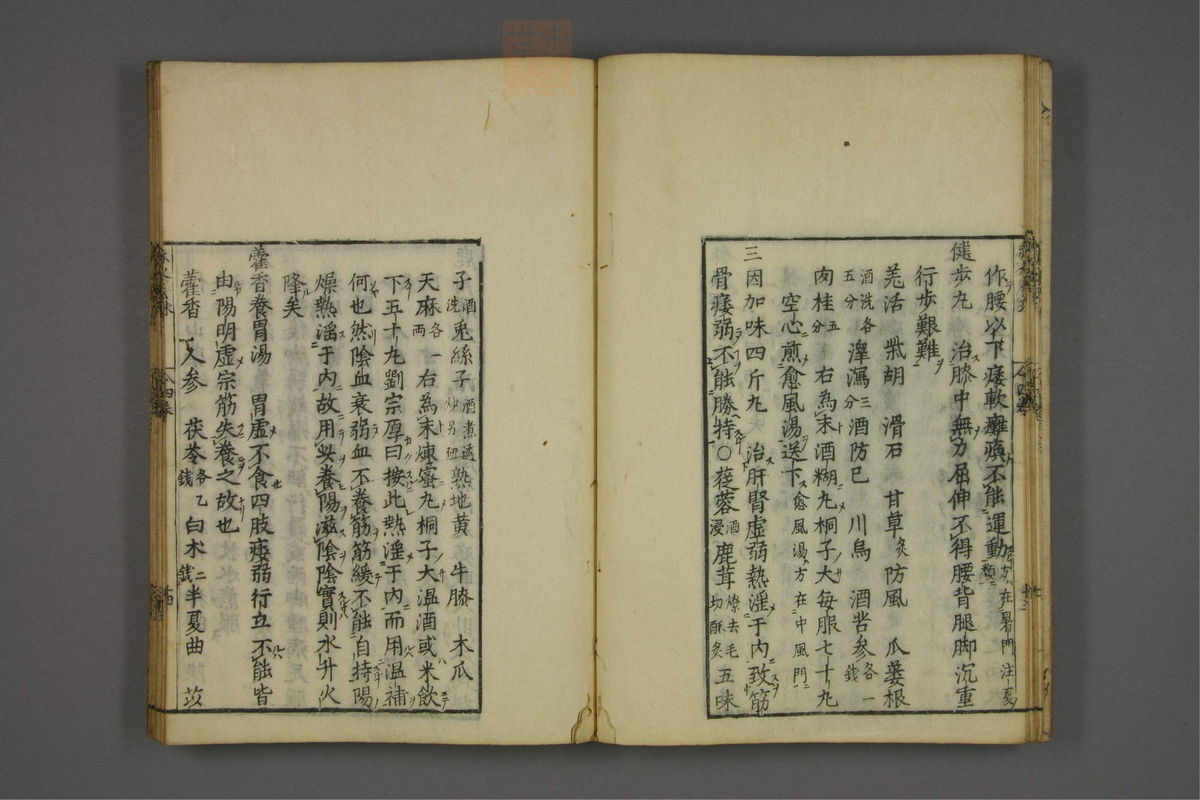 作腰以下痿軟癱瘓不能運動方在暑門注夏類
健步丸 治膝中無力屈伸不得腰背腿脚沉重
行步艱難
羌活 柴胡 滑石 甘草炙防風 瓜蔞根
酒洗各五分 澤瀉三分酒防巳 川烏 酒苦参各一錢
肉桂五分 右為末酒糊丸桐子大每服七十丸
空心煎愈風湯送下愈風湯方在中風門
三因加味四斤丸 治肝腎虚弱熱淫于内致筋
骨痿弱不能勝持○蓯蓉酒浸鹿茸燎去毛切酥炙五味
子酒洗兎絲子酒煮透炒另研熟地黄 牛膝 木瓜
天麻各一両 右為末煉蜜丸桐子大温酒或米飲
下五十丸劉宗厚曰按此熱淫于内而用温補
何也然陰血衰弱血不養筋筋緩不能自持陽
燥熱淫于内故用此養陽滋陰陰實則水升火
降矣
藿香養胃湯 胃虚不食四肢痿弱行立不能皆
由陽明虚宗筋失養之故也
藿香 人参 茯苓各乙錢白木二錢半夏曲 苡